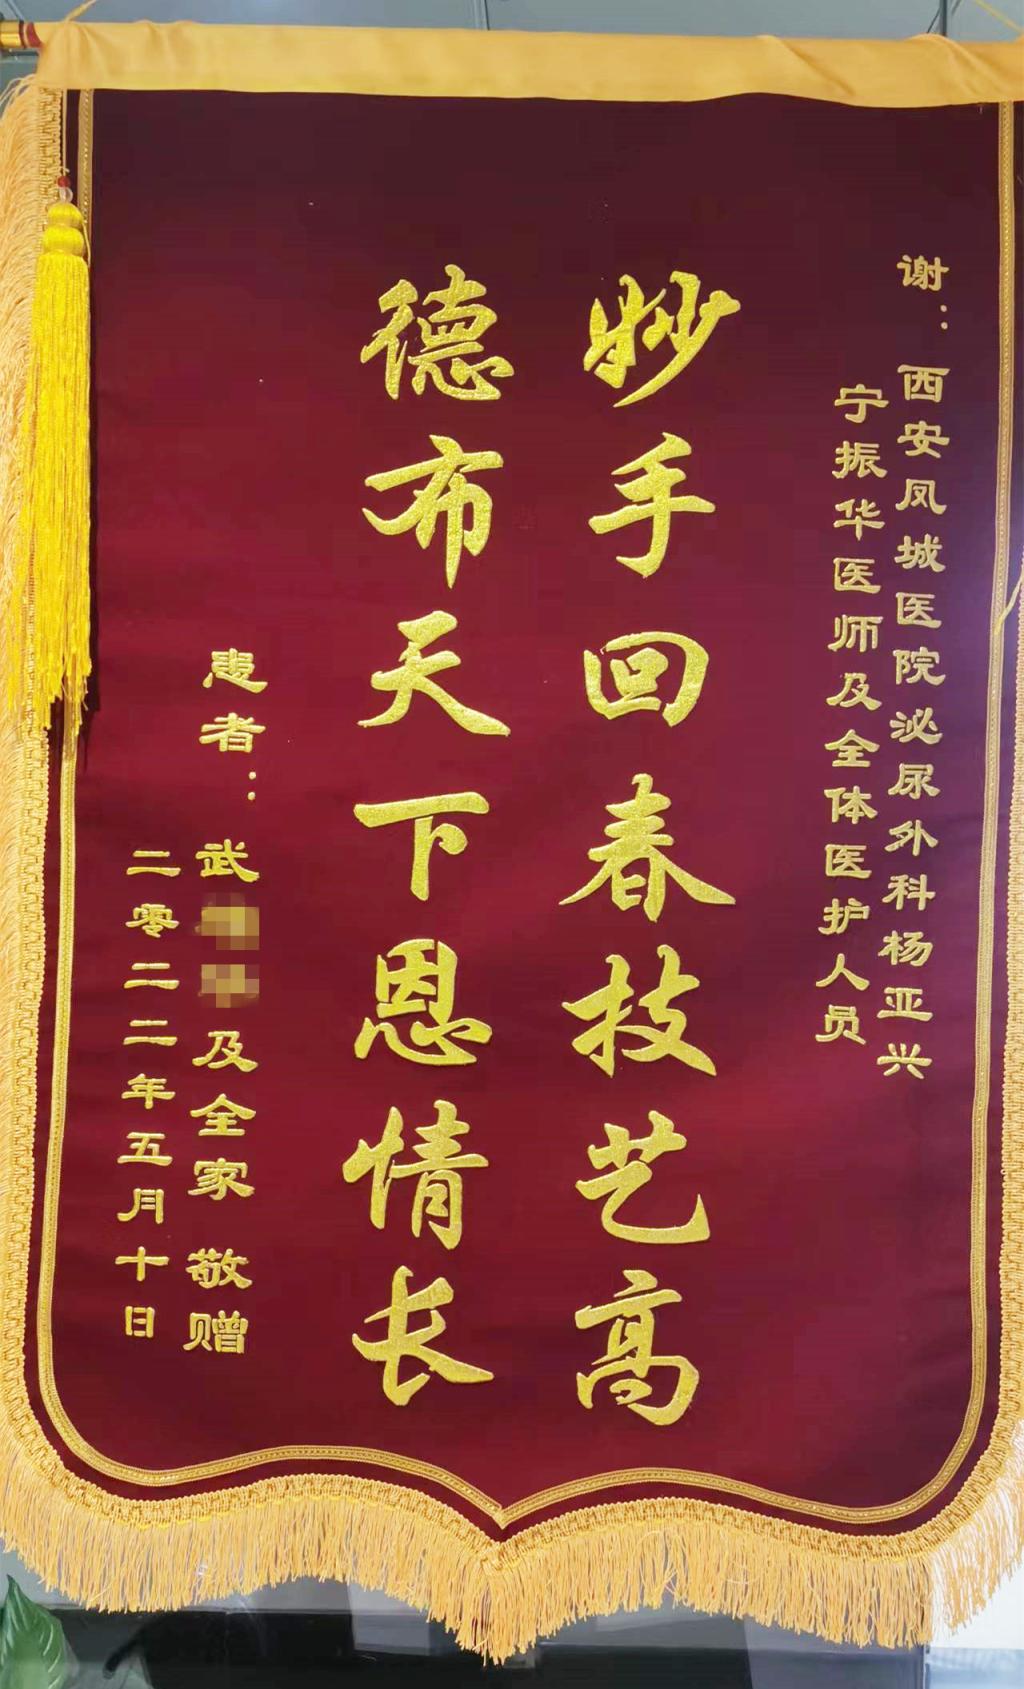 谢：西安凤城医院泌尿外科杨亚兴
宁振华医师及全体医护人员
妙手回春技艺高
德布天下恩情长
患者：武及全家 敬赠
二零二二年五月十日